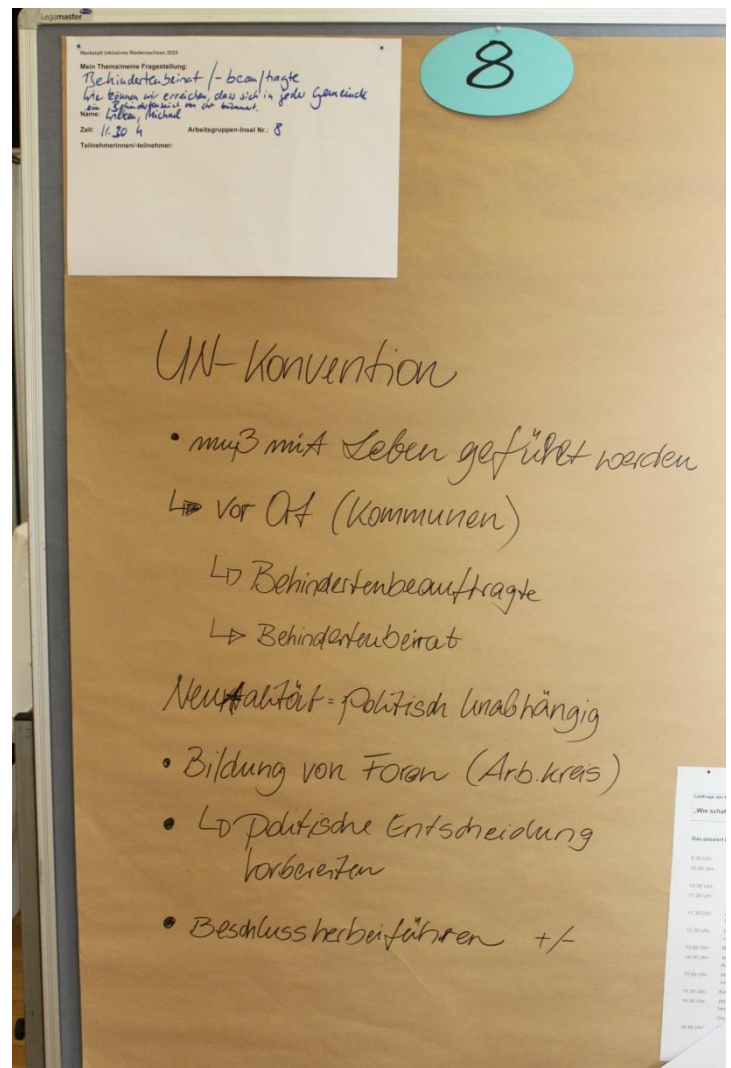 Legamaster
Werkstatt inklusives Niedersachsen 2025
Mein Thema/meine Fragestellung:
Behindertenbeirat /-beauftragte
Wie können wir erreichen, dass sich in jeder Gemeinde
ein Behindertenbeirat vor Ort kümmert.
Name: Michael
Zeit: 11.30 h Arbeitsgruppen-Insel Nr.: 8
Teilnehmerinnen/-teilnehmer:
8
UN-Konvention
• muß mit Leben gefüllt werden
↳ vor Ort (Kommunen)
↳ Behindertenbeauftragte
↳ Behindertenbeirat
Neutralität = politisch unabhängig
• Bildung von Foren (Arb.kreis)
• ↳ politische Entscheidung
vorbereiten
• Beschluss herbeiführen +/-
Leitfrage der
„Wie schaf
Das passiert
9.30 Uhr
10.00 Uhr